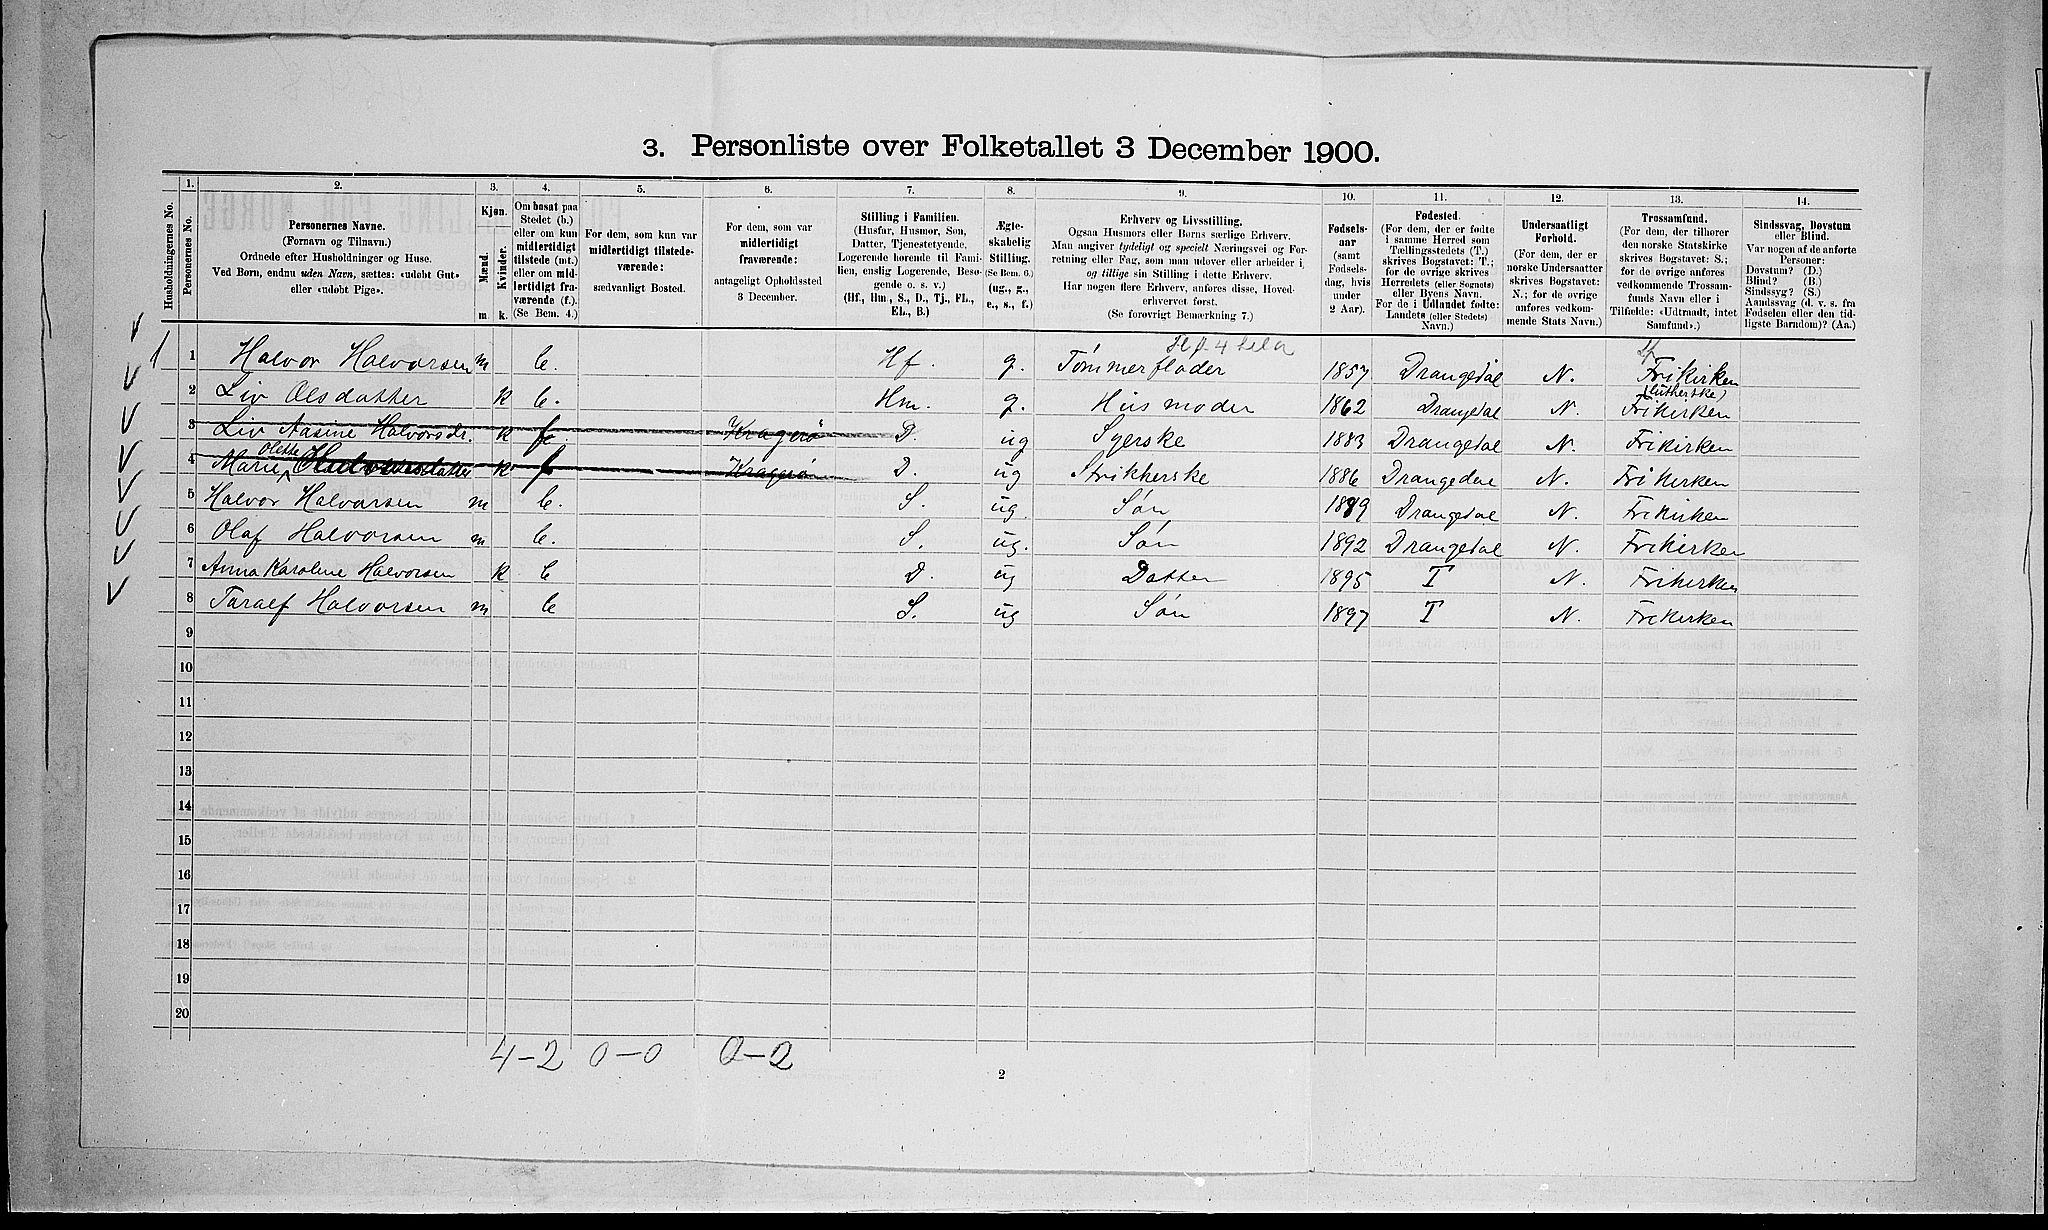 3. Personliste over Folketallet 3 December 1900.
Husholdningernes No.
1. Personernes No.
2. Personernes Navne.
(Fornavn og Tilnavn.)
Ordnede efter Husholdninger og Huse.
Ved Børn, endnu uden Navn, sættes: «udøbt Gut»
eller «udøbt Pige».
3. Kjøn.
Mænd. Kvinder.
m. k.
4. Om bosat paa
Stedet (b.)
eller om kun
midlertidigt
tilstede (mt.)
eller om mid-
lertidigt fra-
værende (f.).
(Se Bem. 4.)
5. For dem, som kun var
midlertidigt tilstede-
værende:
sædvanligt Bosted.
6. For dem, som var
midlertidigt
fraværende:
antageligt Opholdssted
3 December.
7. Stilling i Familien.
(Husfar, Husmor, Søn,
Datter, Tjenestetyende,
Logerende hørende til Fami-
lien, enslig Logerende, Besø-
gende o. s. v.)
(Hf., Hm., S., D., Tj., FL.,
EL., B.)
8. Ægte-
skabelig
Stilling.
(Se Bem. 6.)
(ug., g.,
e., s., f.)
9. Erhverv og Livsstilling.
Ogsaa Husmors eller Børns særlige Erhverv.
Man angiver tydeligt og specielt Næringsvei og For-
retning eller Fag, som man udover eller arbeider i,
og tillige sin Stilling i dette Erhverv.
Har nogen flere Erhverv, anføres disse, Hoved-
erhvervet først.
(Se forøvrigt Bemærkning 7.)
10. Fødsels-
aar
(samt
Fødsels-
dag, hvis
under
2 Aar).
11. Fødested.
(For dem, der er fødte
i samme Herred som
Tællingsstedets (T.)
skrives Bogstavet: T.;
for de øvrige skrives
Herredets (eller Sognets)
eller Byens Navn.
For de i Udlandet fødte:
Landets (eller Stedets)
Navn.)
12. Undersaatligt
Forhold.
(For dem, der er
norske Undersaatter
skrives Bogstavet:
N.; for de øvrige
anføres vedkom-
mende Stats Navn.)
13. Trossamfund.
(For dem, der tilhører
den norske Statskirke
skrives Bogstavet: S.;
for de øvrige anføres
vedkommende Trossam-
funds Navn eller i
Tilfælde: «Udtraadt, intet
Samfund».)
14. Sindssvag, Døvstum
eller Blind.
Var nogen af de anførte
Personer:
Døvstum? (D.)
Blind? (B.)
Sindssyg? (S.)
Aandssvag (d. v. s. fra
Fødselen eller den tid-
ligste Barndom)? (Aa.)
1 1 Halvor Halvorsen m b. Hf. g. Tømmerfløder 1857 Drangedal N. Frikirken
(lutherske)
2 Liv Olsdatter k b. Hm. g. Husmoder 1862 Drangedal N. Frikirken
3 Liv Aasine Halvorsdr. k f. Kragerø D. ug Syerske 1883 Drangedal N. Frikirken
Olette
4 Marie Halvorsdatter k f Kragerø D. ug Strikkerske 1886 Drangedal N. Frikirken
5 Halvor Halvorsen m b. S. ug. Søn 1889 Drangedal N. Frikirken
6 Olaf Halvorsen m b. S. ug. Søn 1892 Drangedal N. Frikirken
7 Anna Karoline Halvorsen k b D. ug Datter 1895 T N. Frikirken
8 Taralf Halvorsen m b S. ug Søn 1897 T N. Frikirken
9
10
11
12
13
14
15
16
17
18
19
20
4-2 0-0 0-2
2